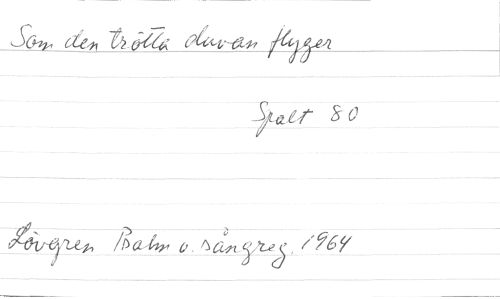 Som den trötta duvan flyger
Spalt 80
Lövgren Psalm o. sångreg. 1964